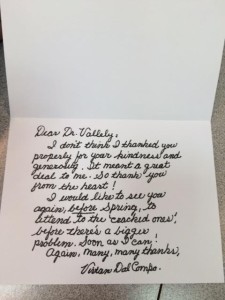 Dear Dr. Vallely,
I don't think I thanked you
properly for your kindness and
generosity. It meant a great
deal to me. So thank you
from the heart!
I would like to see you
again, before Spring, to
attend to the "cracked ones",
before there's a bigger
problem. Soon as I can!
Again, many, many thanks,
Vivian Dal Compo.